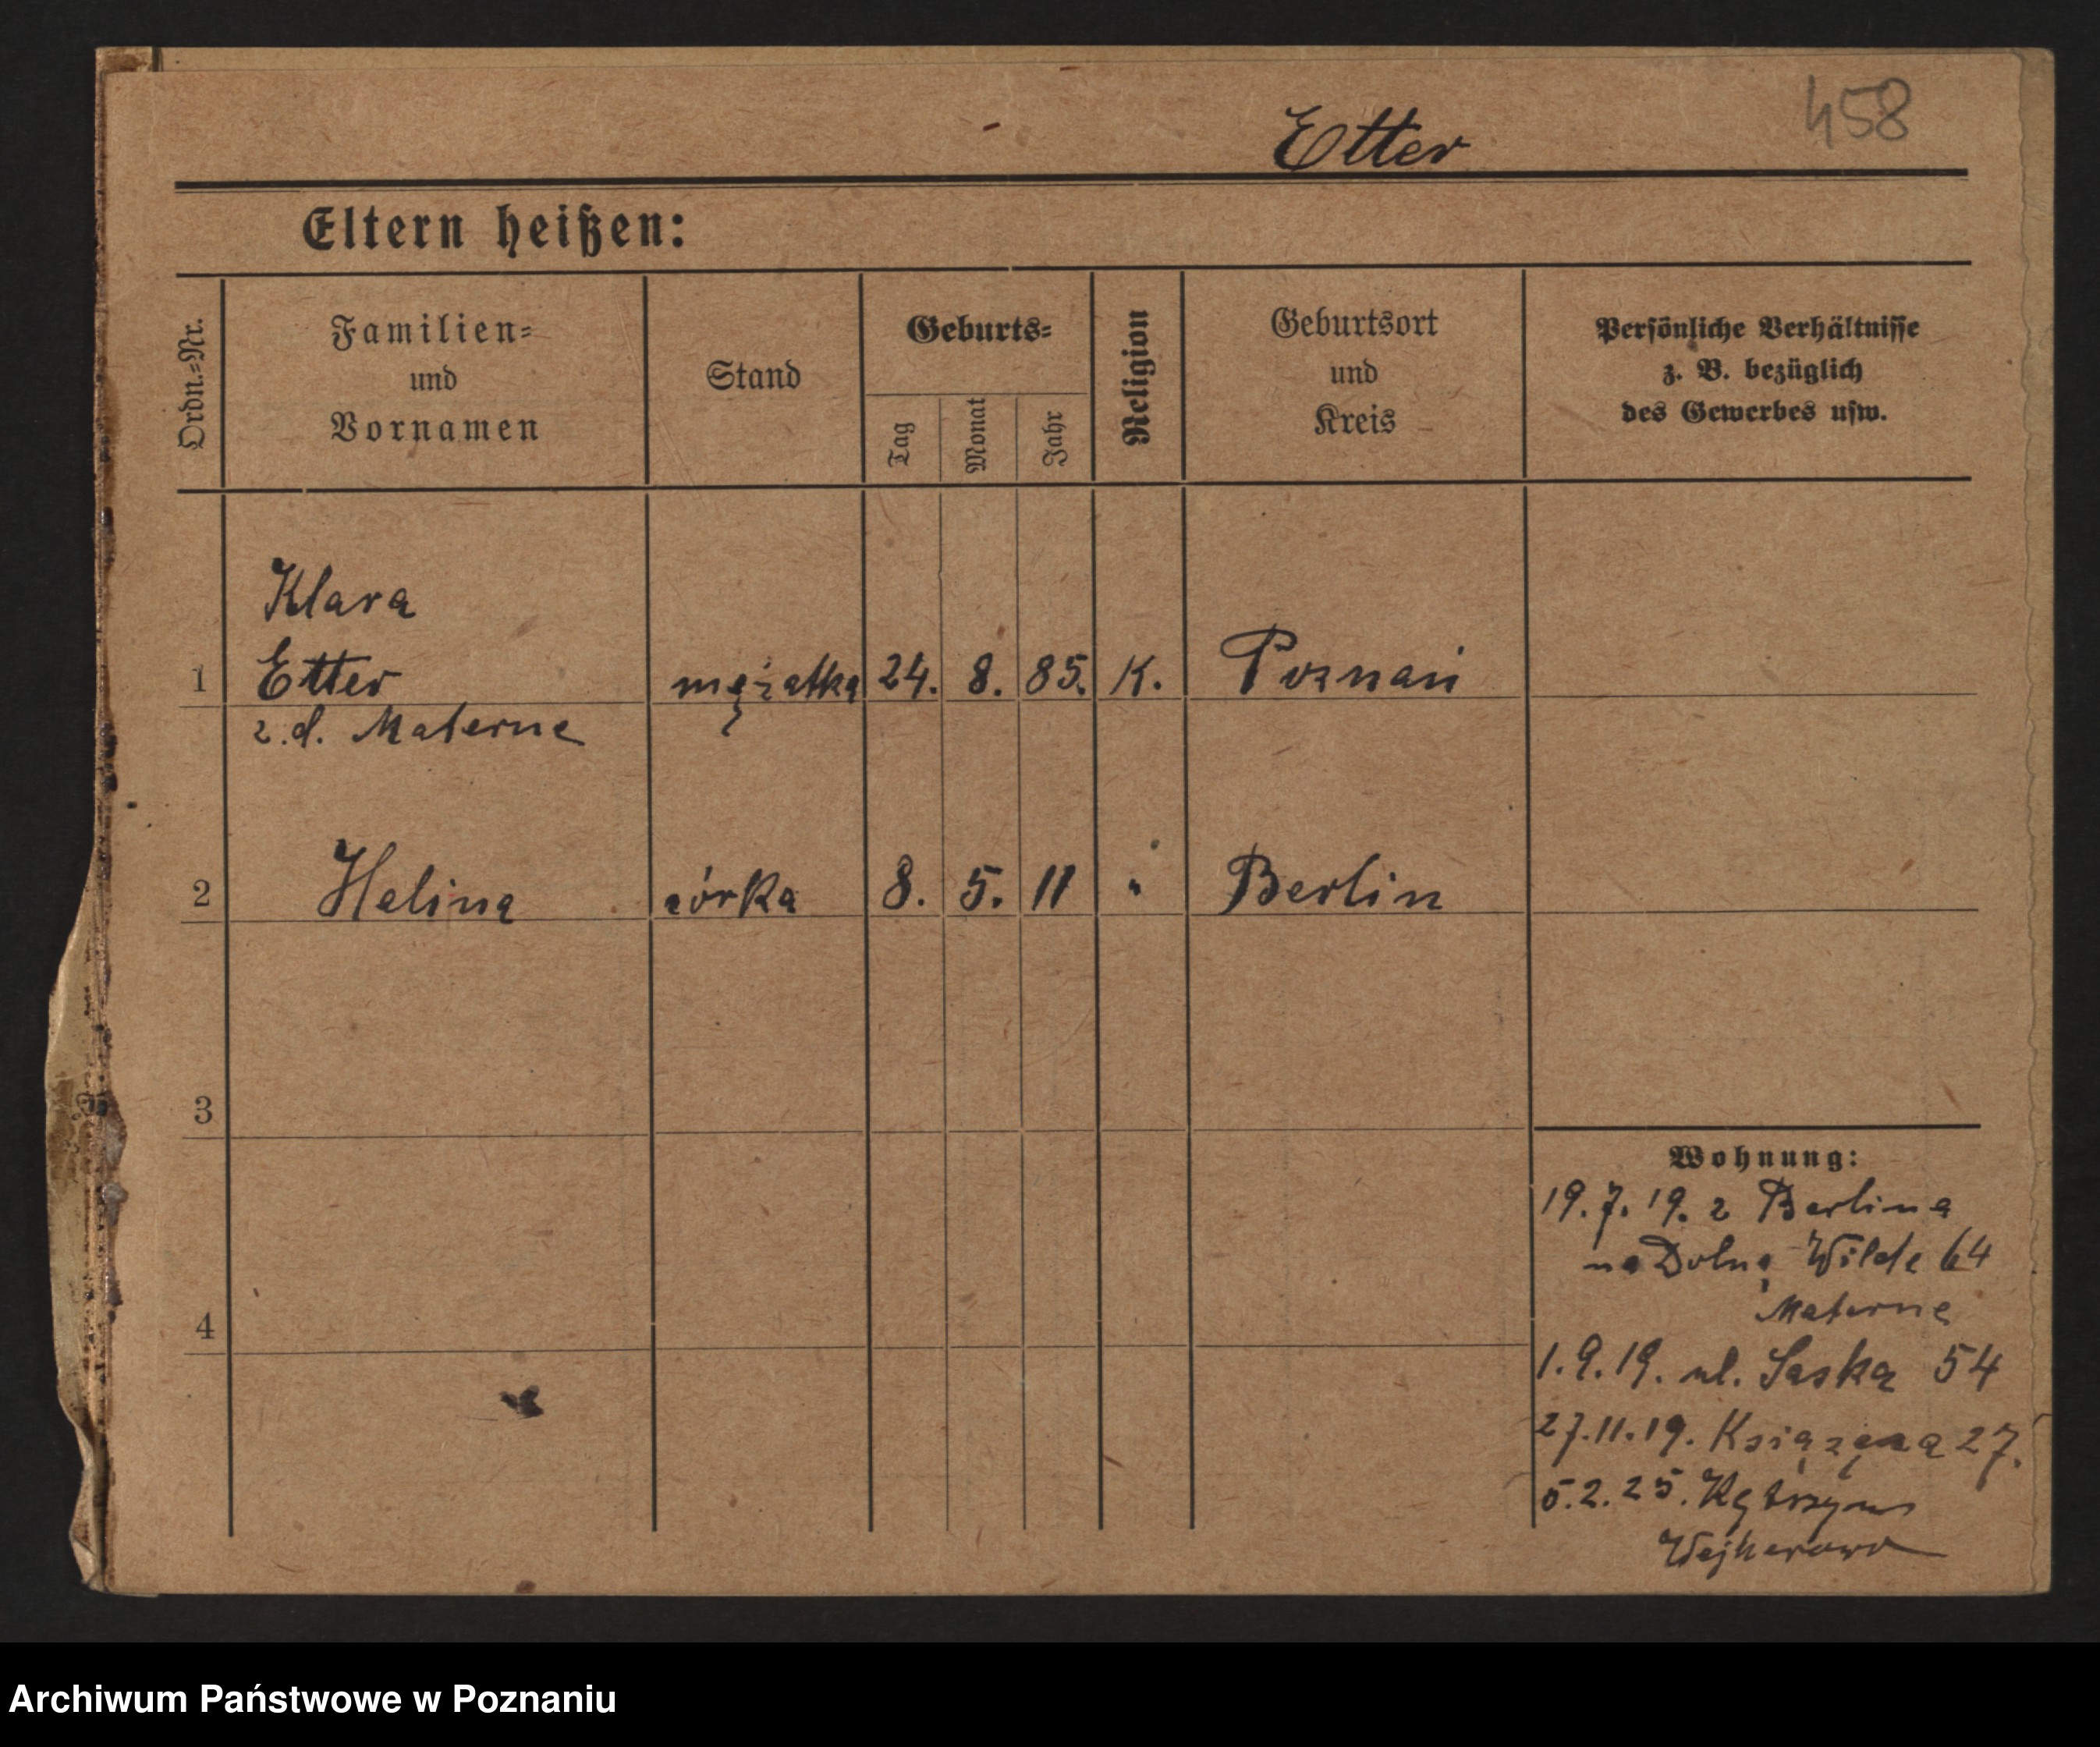 458
Etter
Eltern heißen:
Ordn.-Nr.
Familien-
und
Vornamen
Stand
Geburts-
Tag
Monat
Jahr
Religion
Geburtsort
und
Kreis
Persönliche Verhältnisse
z. B. bezüglich
des Gewerbes usw.
Klara
1 Etter mężatka 24. 8. 85. K. Poznań
z.d. Materne
2 Helina córka 8. 5. 11 " Berlin
3
4
Wohnung:
19.7.19. z Berlina
na Dolną Wildę 64
Materne
1.9.19. ul. Saska 54
27.11.19. 27.
5.2.25.
Wejherowo
Archiwum Państwowe w Poznaniu